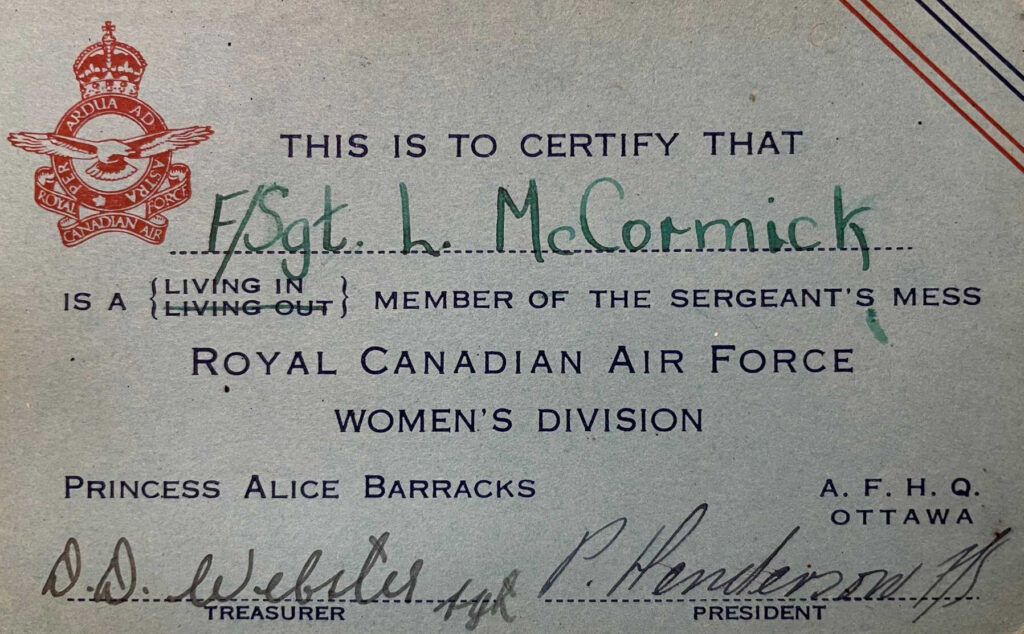 PER ARDUA AD ASTRA
ROYAL CANADIAN AIR FORCE
THIS IS TO CERTIFY THAT
F/Sgt. L. McCormick
IS A { LIVING IN
LIVING OUT } MEMBER OF THE SERGEANT'S MESS
ROYAL CANADIAN AIR FORCE
WOMEN'S DIVISION
PRINCESS ALICE BARRACKS
A. F. H. Q.
OTTAWA
D.D. Webster Sgt
P. Henderson F/S
TREASURER
PRESIDENT